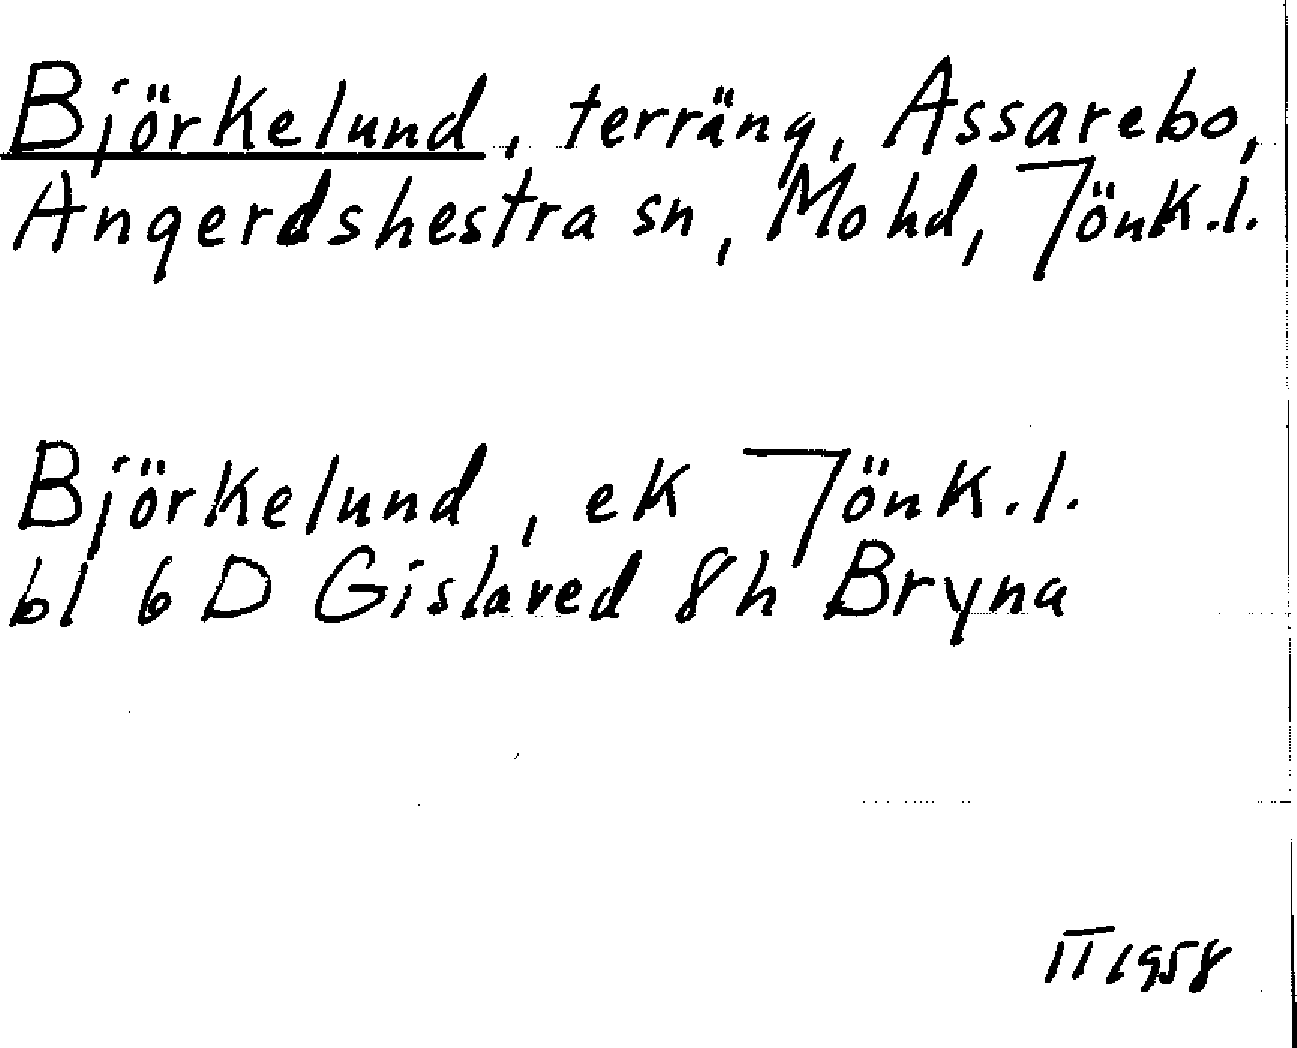 Björkelund, terräng, Assarebo,
Angerdshestra sn, Mo hd, Jönk.l.
Björkelund, ek Jönk.l.
bl 6 D Gislaved 8h Bryna
IT 1958